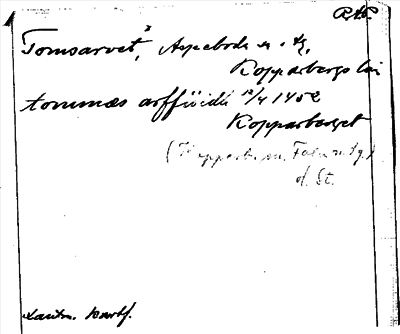 RAP.
Tomsarvet, Aspeboda sn. o. tg.
Kopparbergs län
tommæs arffwidh 12/4 1452
Kopparberget
(Kopparb. sn. Falu n. tg.)
d. St.
Lantm. kartf.